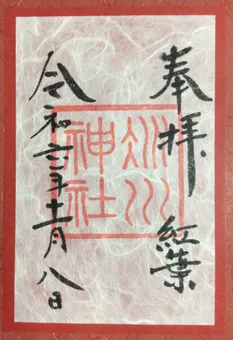 奉拝 紅葉
氷川
神社
令和六年十一月八日